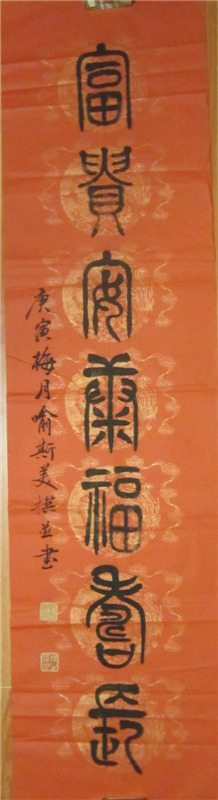 富貴安康福壽長
庚寅梅月喻斯美撰並書